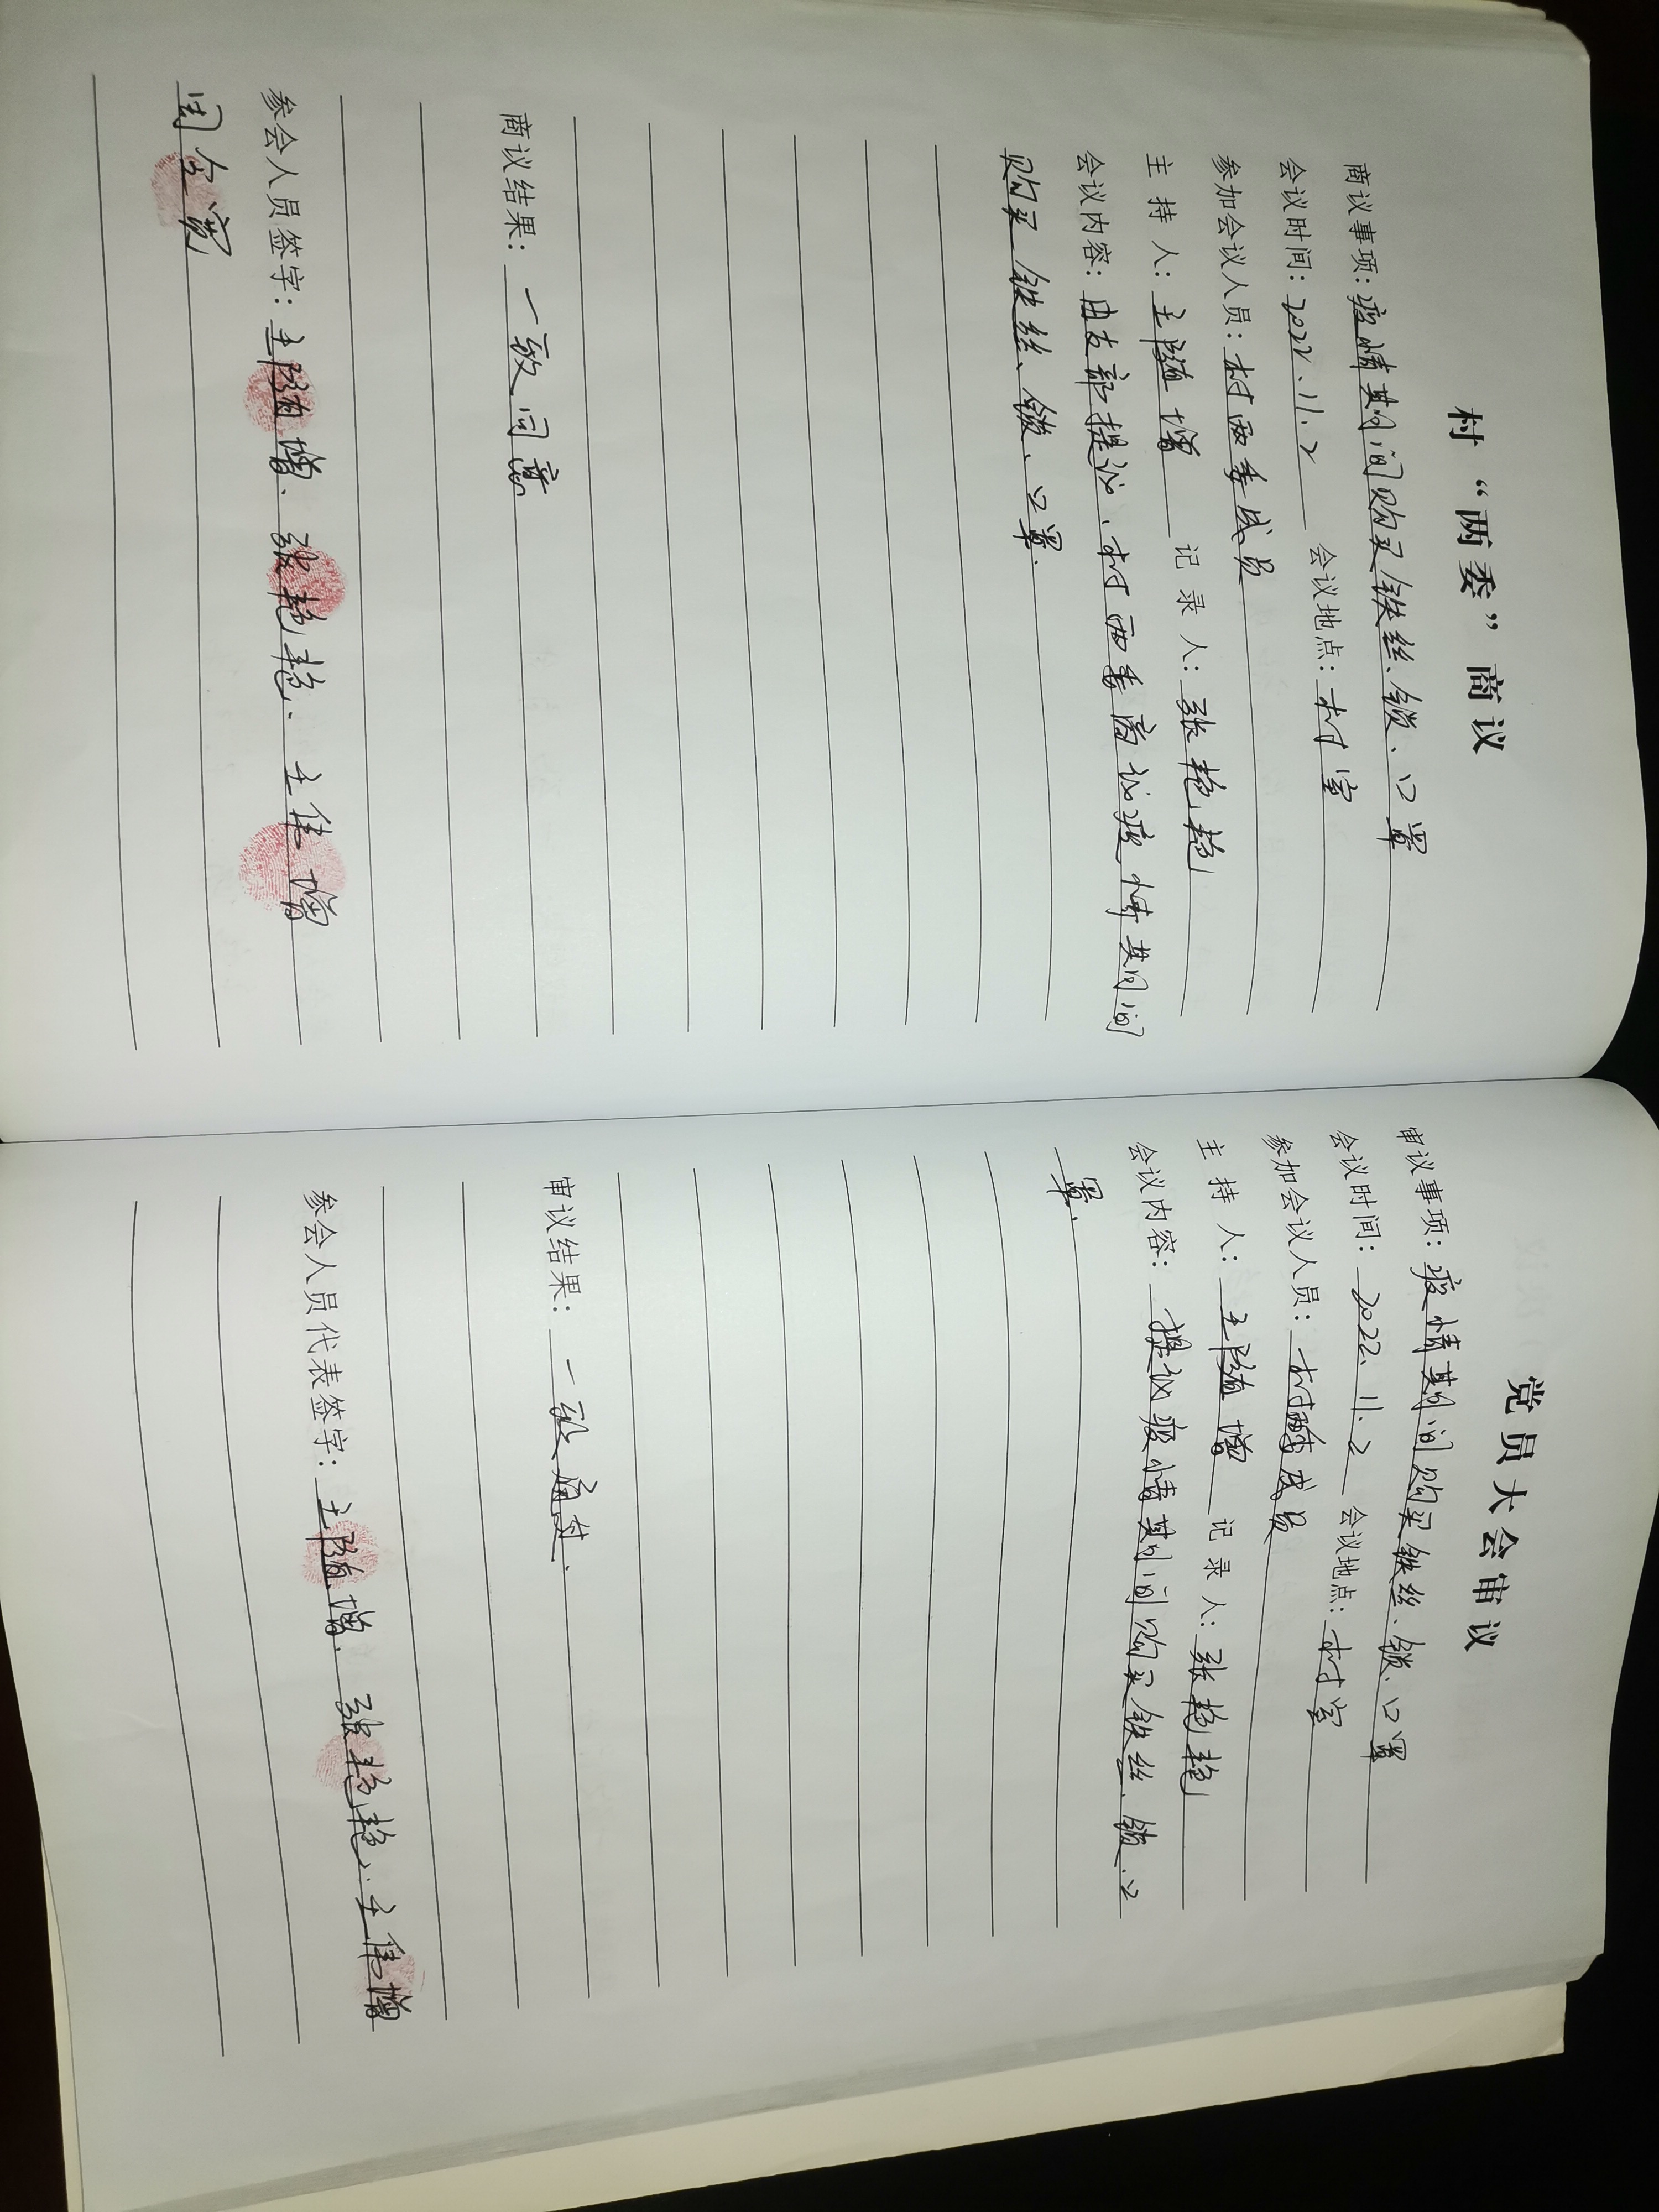 村“两委”商议
商议事项：疫情期间购买铁丝、锁、口罩
会议时间：2022.11.2 会议地点：村室
参加会议人员：村两委成员
主持人：王随增 记录人：张艳艳
会议内容：由支部提议，村两委商议疫情期间
购买铁丝、锁、口罩.
商议结果：一致同意
参会人员签字：王随增、张艳艳、王伟增
周全宽
党员大会审议
审议事项：疫情期间购买铁丝、锁、口罩
会议时间：2022.11.2 会议地点：村室
参加会议人员：村两委成员
主持人：王随增 记录人：张艳艳
会议内容：提议疫情期间购买铁丝、锁、口
罩.
审议结果：一致通过.
参会人员代表签字：王随增、张艳艳、王伟增